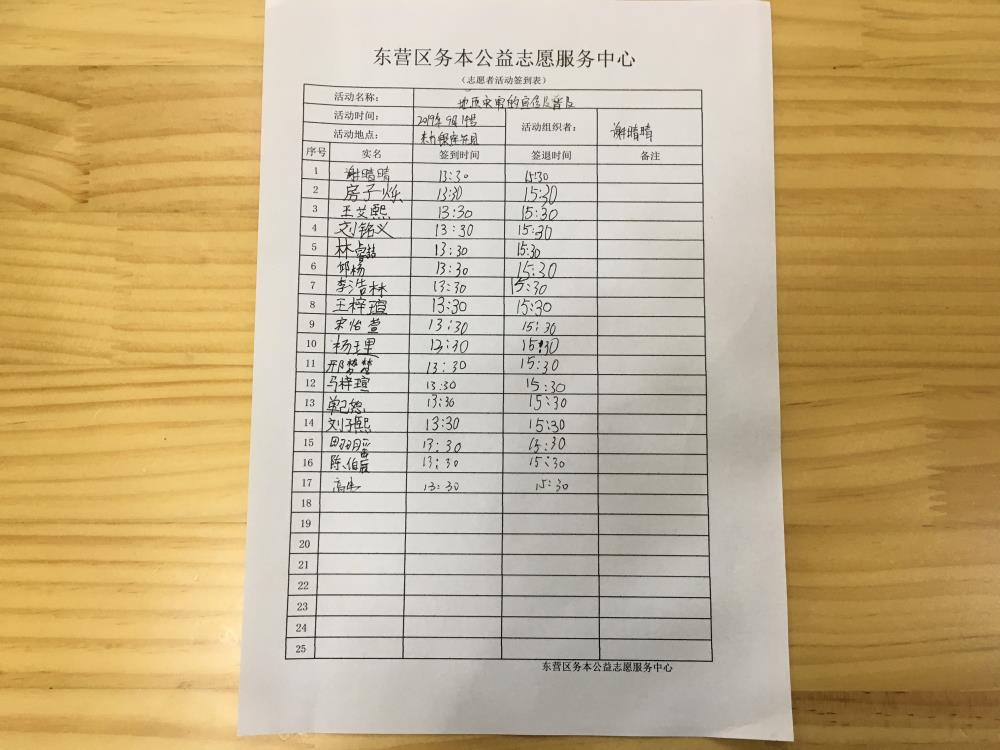 东营区务本公益志愿服务中心
（志愿者活动签到表）
活动名称： 地质灾害的宣传及普及
活动时间： 2019年9月14号 活动组织者： 谢晴晴
活动地点：
序号 实名 签到时间 签退时间 备注
1 谢晴晴 13:30 15:30
2 房子烁 13:30 15:30
3 王艾熙 13:30 15:30
4 刘铭义 13:30 15:30
5 林睿喆 13:30 15:30
6 邱杨 13:30 15:30
7 李浩林 13:30 15:30
8 王梓瑄 13:30 15:30
9 宋怡萱 13:30 15:30
10 杨 13:30 15:30
11 邢梦梦 13:30 15:30
12 马梓瑄 13:30 15:30
13 单己恕 13:30 15:30
14 刘子熙 13:30 15:30
15 13:30 15:30
16 陈伯 13:30 15:30
17 高 13:30 15:30
18
19
20
21
22
23
24
25
东营区务本公益志愿服务中心